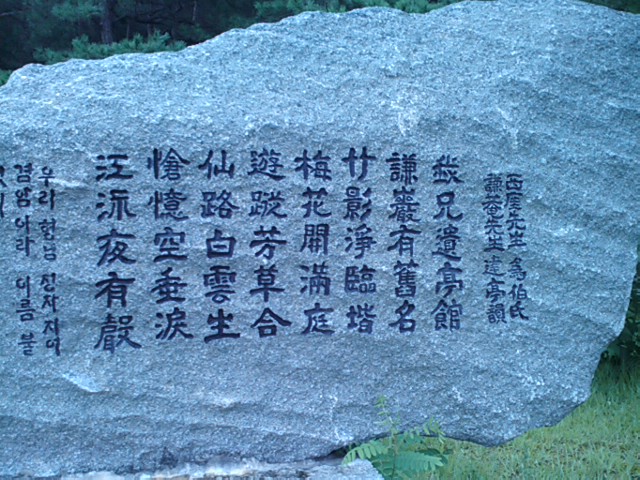 西厓先生 爲伯氏
謙菴先生 亭韻
我兄遺亭館
謙巖有舊名
竹影淨臨堦
梅花開滿庭
遊蹤芳草合
仙路白雲生
愴憶空垂淚
江流夜有聲
우리 형님 정자 지어
겸암이라 이름 불